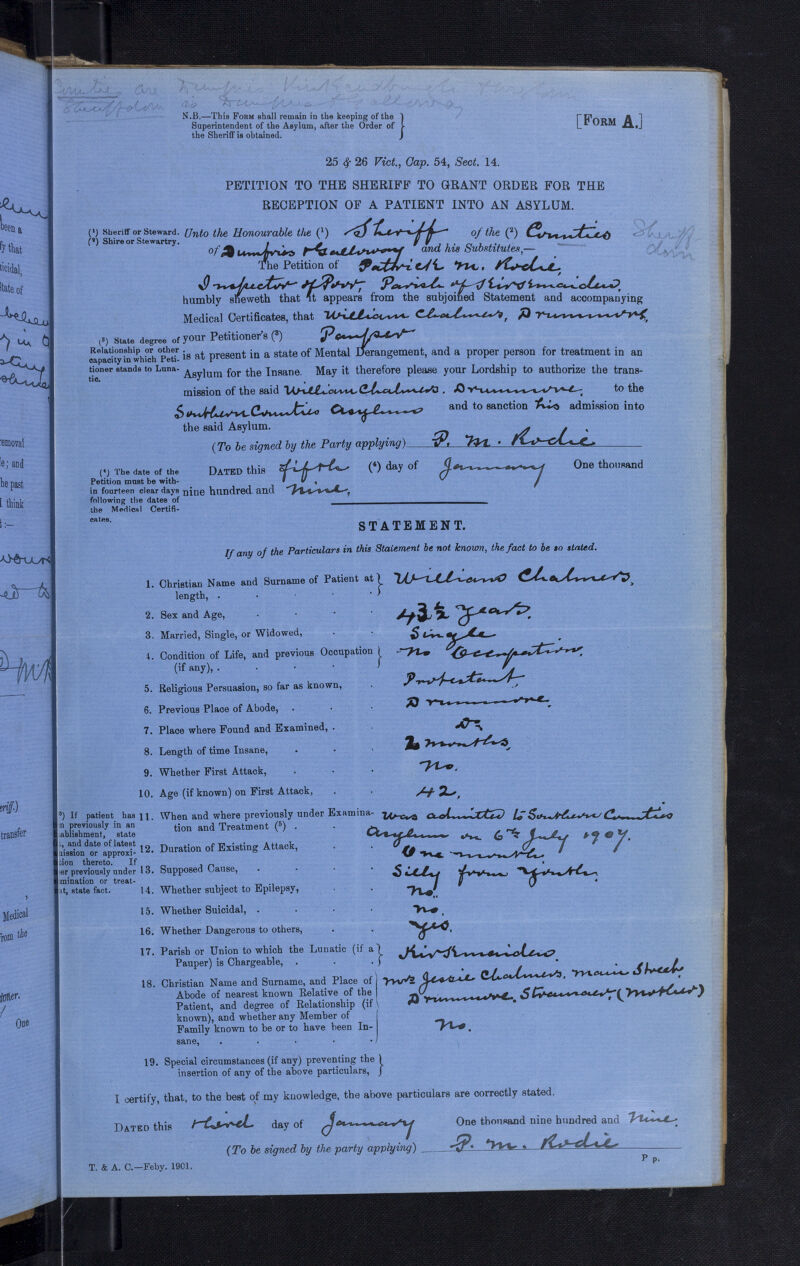 Counties are Dumfries Kirkcudbright Wigtown
Sheriffdom is Dumfries & Galloway
N.B.—This Form shall remain in the keeping of the
Superintendent of the Asylum, after the Order of
the Sheriff is obtained.
[Form A.]
25 & 26 Vict., Cap. 54, Sect. 14.
PETITION TO THE SHERIFF TO GRANT ORDER FOR THE
RECEPTION OF A PATIENT INTO AN ASYLUM.
(¹) Sheriff or Steward.
(²) Shire or Stewartry.
Unto the Honourable the (¹) Sheriff of the (²) Counties
Sheriffdom
of Dumfries & Galloway and his Substitutes,—
The Petition of Patrick M. Rodie,
Inspector of Poor, Parish of Kirkmaiden,
humbly sheweth that it appears from the subjoined Statement and accompanying
Medical Certificates, that William Chalmers, Drummore,
(³) State degree of
Relationship or other
capacity in which Peti-
tioner stands to Luna-
tic.
your Petitioner's (³) Pauper
is at present in a state of Mental Derangement, and a proper person for treatment in an
Asylum for the Insane. May it therefore please your Lordship to authorize the trans-
mission of the said William Chalmers. Drummore, to the
Southern Counties Asylum and to sanction his admission into
the said Asylum.
(To be signed by the Party applying) P. M. Rodie
(⁴) The date of the
Petition must be with-
in fourteen clear days
following the dates of
the Medical Certifi-
cates.
Dated this fifth (⁴) day of January One thousand
nine hundred and Nine,
STATEMENT.
If any of the Particulars in this Statement be not known, the fact to be so stated.
1. Christian Name and Surname of Patient at
length, . William Chalmers,
2. Sex and Age, 43½ years.
3. Married, Single, or Widowed, Single
4. Condition of Life, and previous Occupation
(if any), . No Occupation,
5. Religious Persuasion, so far as known, Protestant,
6. Previous Place of Abode, . Drummore,
7. Place where Found and Examined, . Do
8. Length of time Insane, 2 months,
9. Whether First Attack, No.
10. Age (if known) on First Attack, 42,
(⁵) If patient has
n previously in an
ablishment, state
, and date of latest
ission or approxi-
tion thereto. If
er previously under
mination or treat-
t, state fact.
11. When and where previously under Examina- Was admitted to Southern Counties
tion and Treatment (⁵) . Asylum on 6th July 1907.
12. Duration of Existing Attack, One month,
13. Supposed Cause, Silly from Youth,
14. Whether subject to Epilepsy, No,
15. Whether Suicidal, . No,
16. Whether Dangerous to others, Yes.
17. Parish or Union to which the Lunatic (if a
Pauper) is Chargeable, . Kirkmaiden
18. Christian Name and Surname, and Place of
Abode of nearest known Relative of the
Patient, and degree of Relationship (if
known), and whether any Member of
Family known to be or to have been In-
sane,
Mrs Jessie Chalmers. Main Street,
Drummore, Stranraer, (Mother)
No.
19. Special circumstances (if any) preventing the
insertion of any of the above particulars,
I certify, that, to the best of my knowledge, the above particulars are correctly stated.
Dated this third day of January One thousand nine hundred and Nine,
(To be signed by the party applying) P. M. Rodie
T. & A. C.—Feby. 1901.
P p.
been a
y that
icidal,
tate of
removal
e; and
he past
I think
:—
riff.)
transfer
Medical
from the
One